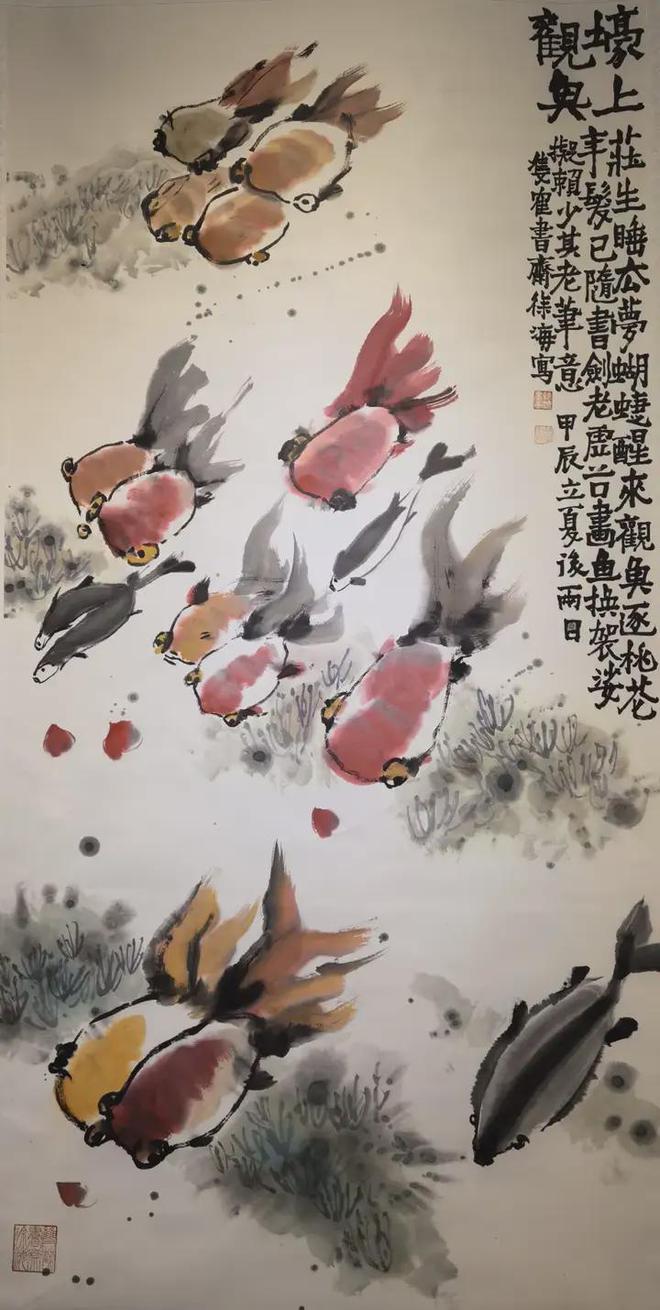 壕上
觀魚
莊生睡去夢蝴蝶醒來觀魚逐桃花
半髮已隨書劍老虛谷畫魚換袈裟
擬賴少其老筆意 甲辰立夏後兩日
雙隺書齋徐海寫